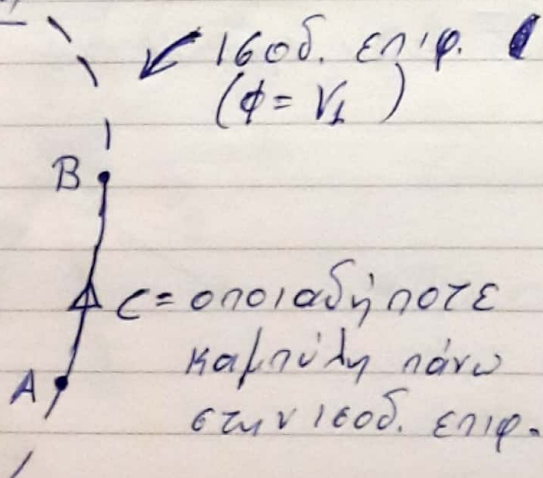 ισοδ. επιφ. 1
(φ = V₁)
B
C = οποιαδήποτε
καμπύλη πάνω
A
στην ισοδ. επιφ.